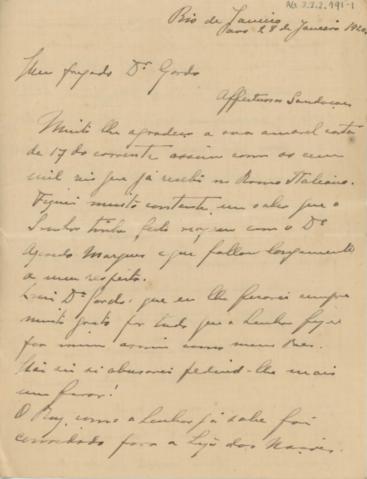 AG.2.2.2.191-1
Rio de Janeiro
28 de Janeiro 1920
Meu prezado Dr Gordo
Affectuosas Saudações
Muito lhe agradeço a sua amavel carta
de 17 do corrente assim como os cem
mil reis que já recebi no Banco Italiano.
Fiquei muito contente em saber que o
Senhor tenha feito com o Dr
Marques e que fallou longamente
a meu respeito.
Dr Gordo, que eu lhe ficarei sempre
muito grato por tudo que o Senhor fizer
por mim, assim como meus Paes.
Não sei si abusarei pedindo-lhe mais
um favor!
O Ruy, como o Senhor já sabe foi
convidado para a Liga das Nações.